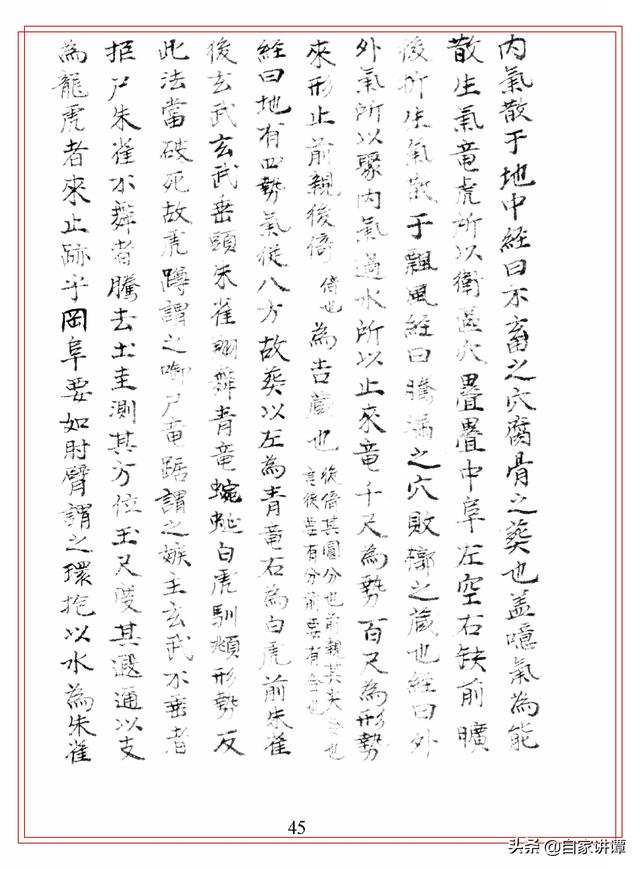 内氣散于地中經曰不畜之穴腐骨之葬也盖噫氣為能
散生氣竜虎所以衛區穴疊疊中阜左空右缺前曠
後折生氣散于飄風經曰騰漏之穴敗槨之藏也經曰外
外氣所以聚内氣過水所以止來竜千尺為勢百尺為形勢
來形止前親後倚倚也為吉藏也後倚其圓分也前親其夹合也言後要有分前要有合也
經曰地有四勢氣従八方故葬以左為青竜右為白虎前朱雀
後玄武玄武垂頭朱雀翔舞青竜蜿蜒白虎馴頫形勢反
此法當破死故虎蹲謂之啣尸竜踞謂之嫉主玄武不垂者
拒尸朱雀不舞者騰去土圭測其方位玉尺度其遐邇以支
為龍虎者來止跡乎岡阜要如肘臂謂之環抱以水為朱雀
45
头条 @自家讲谭